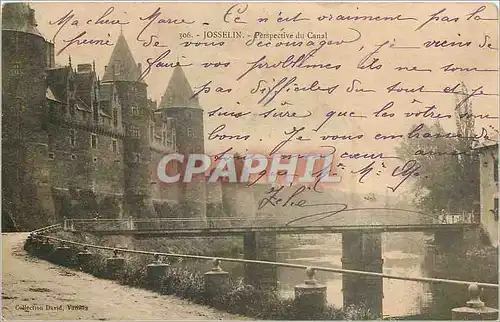 Ma chère Marie - Ce n'est vraiment pas la
306. - JOSSELIN. - Perspective du Canal
peine de vous décourager, je viens de
faire vos problèmes ils ne sont
pas difficiles du tout et je
suis sûre que les vôtres sont
bons. Je vous embrasse
mon cœur
CPARAMA
Collection David, Vannes